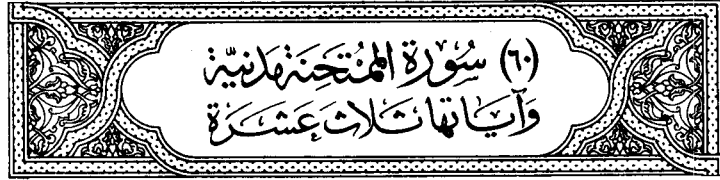 (٦٠) سُورَة المُمْتَحِنَة مَدَنِيَّة
وَآيَاتهَا ثَلَاث عَشَرَة